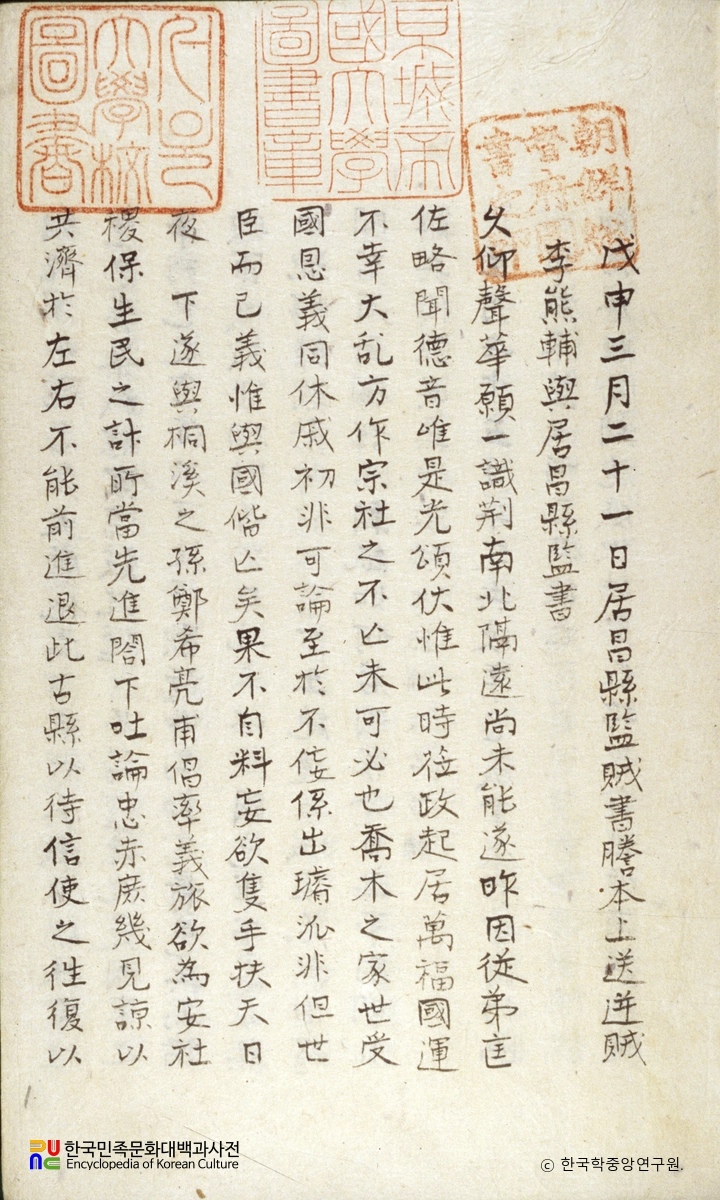 戊申三月二十一日居昌縣監賊書謄本上送迸賊
李熊輔與居昌縣監書
久仰聲華願一識荆南北隔遠尚未能遂昨因従弟匡
佐略聞德音唯是光頌伏惟此時莅政起居萬福國運
不幸大乱方作宗社之不亾未可必也喬木之家世受
國恩義同休戚初非可論至於不佞係出璿泒非但世
臣而已義惟與國偕亾矣果不自料妄欲隻手扶天日
夜 下遂與桐溪之孫鄭希亮甫倡率義旅欲為安社
稷保生民之計所當先進閤下吐論忠赤庻幾見諒以
共濟於左右不能前進退此古縣以待信使之徃復以
朝鮮總督府圖書之印
京城帝國大學圖書章
서울大學校圖書
한국민족문화대백과사전
Encyclopedia of Korean Culture
ⓒ 한국학중앙연구원